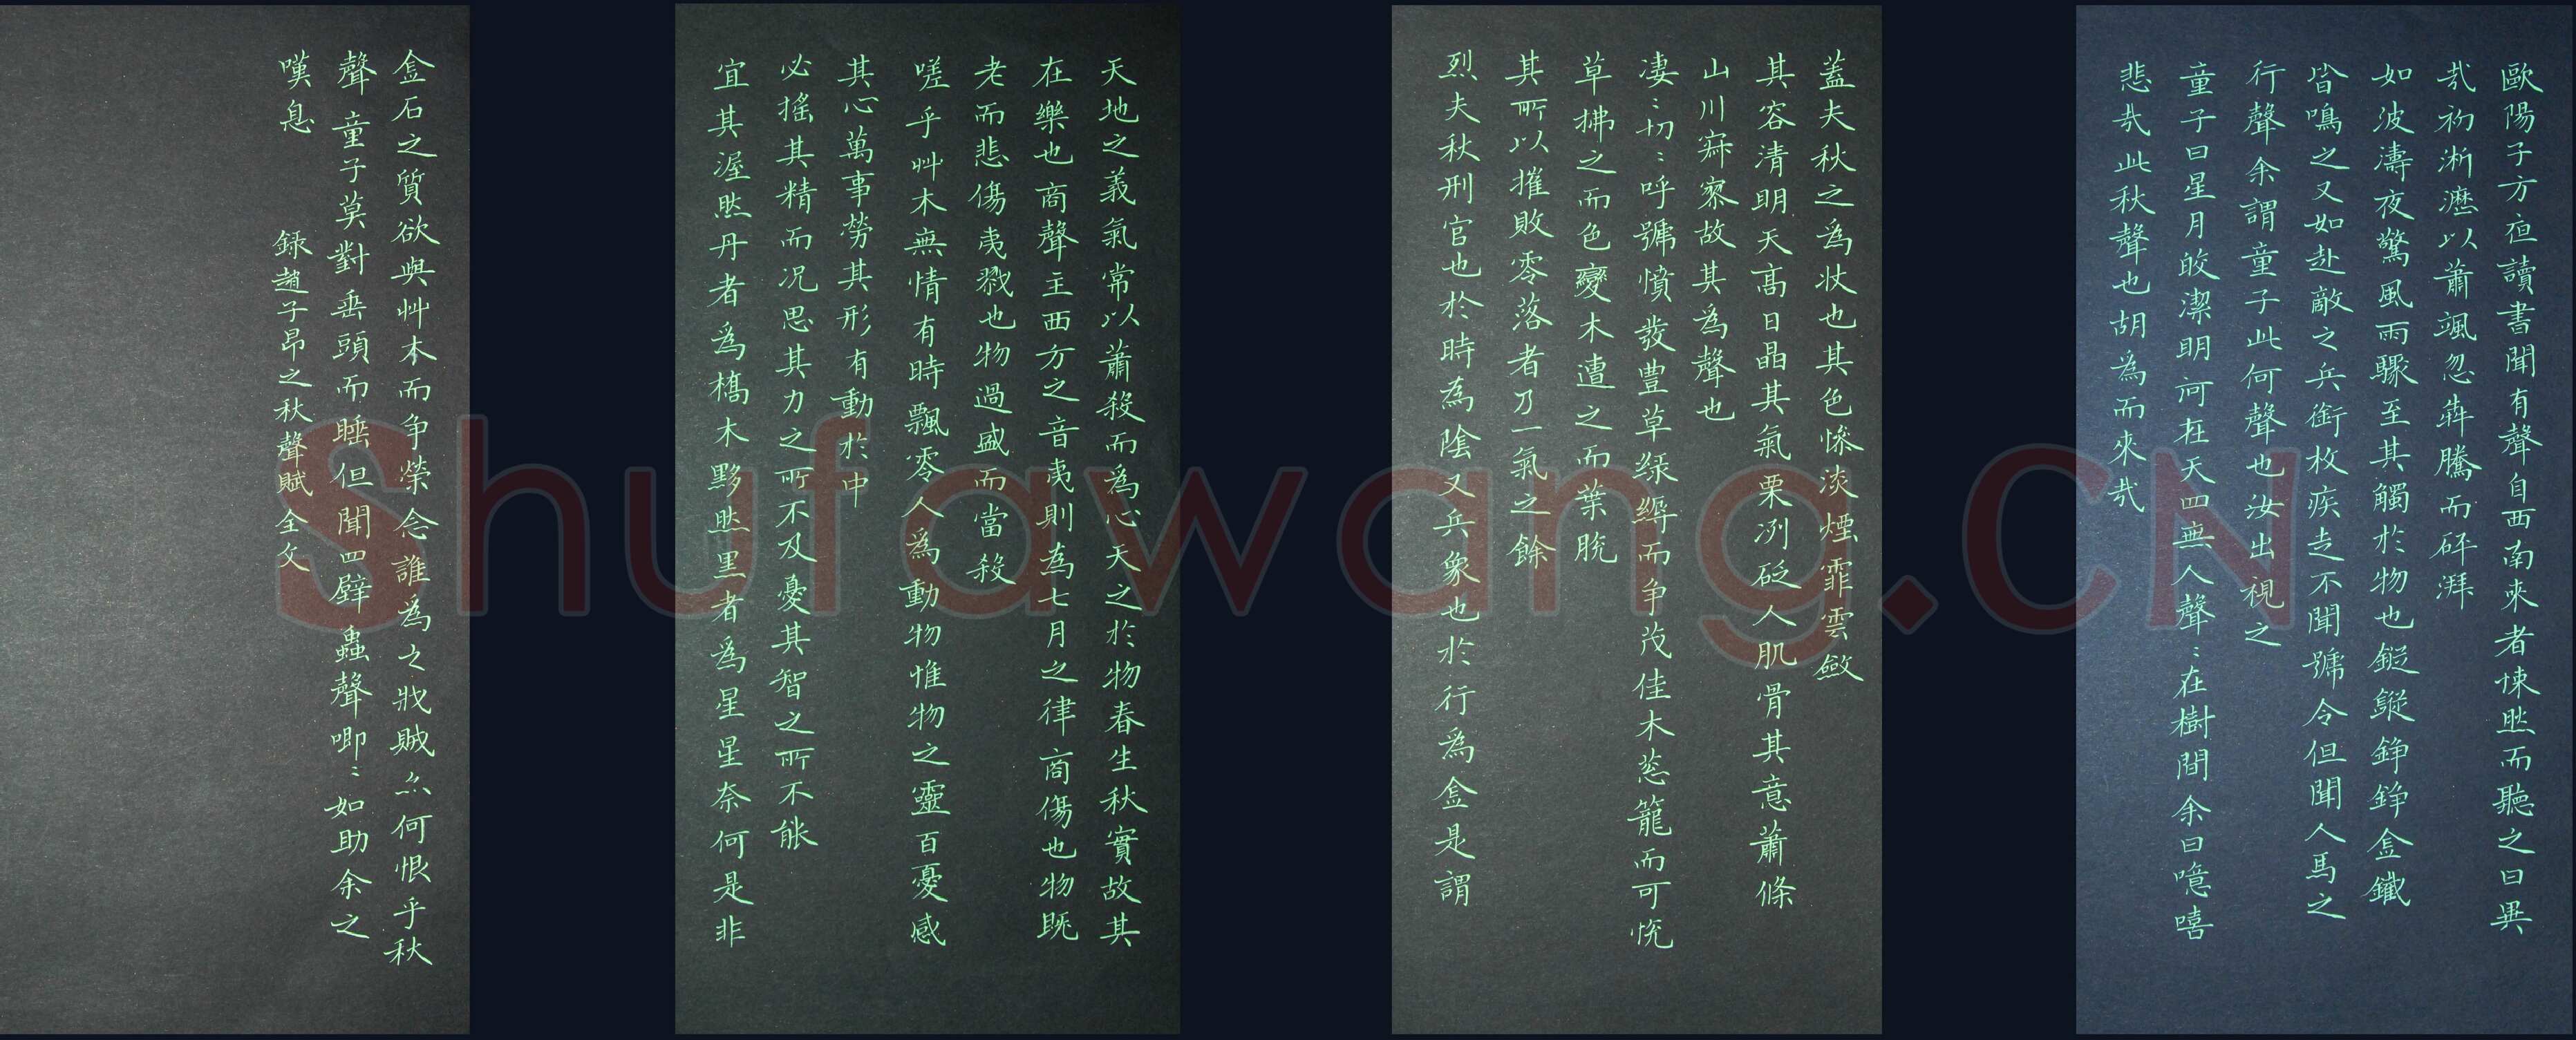 歐陽子方夜讀書聞有聲自西南來者悚然而聽之曰異
哉初淅瀝以蕭颯忽犇騰而砰湃
如波濤夜驚風雨驟至其觸於物也鏦鏦錚錚金鐵
皆鳴之又如赴敵之兵銜枚疾走不聞號令但聞人馬之
行聲余謂童子此何聲也汝出視之
童子曰星月皎潔明河在天四無人聲〻在樹間余曰噫嘻
悲哉此秋聲也胡為而來哉
蓋夫秋之為狀也其色慘淡煙霏雲斂
其容清明天高日晶其氣栗冽砭人肌骨其意蕭條
山川寂寥故其為聲也
凄〻切〻呼號憤發豐草綠縟而爭茂佳木蔥籠而可悅
草拂之而色變木遭之而葉脫
其所以摧敗零落者乃一氣之餘
烈夫秋刑官也於時為陰又兵象也於行為金是謂
天地之義氣常以蕭殺而為心天之於物春生秋實故其
在樂也商聲主西方之音夷則為七月之律商傷也物既
老而悲傷夷戮也物過盛而當殺
嗟乎艸木無情有時飄零人為動物惟物之靈百憂感
其心萬事勞其形有動於中
必搖其精而況思其力之所不及憂其智之所不能
宜其渥然丹者為槁木黟然黑者為星星奈何是非
金石之質欲與艸木而爭榮念誰為之戕賊亦何恨乎秋
聲童子莫對垂頭而睡但聞四壁蟲聲唧〻如助余之
嘆息 錄趙子昂之秋聲賦全文
Shufawang.CN